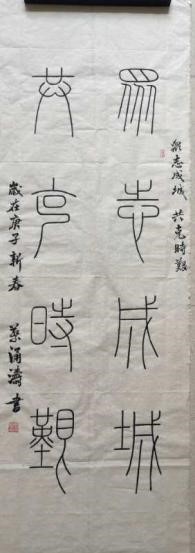 衆志成城 共克時艱
眾志成城
共克時艱
歲在庚子新春 涌濤書